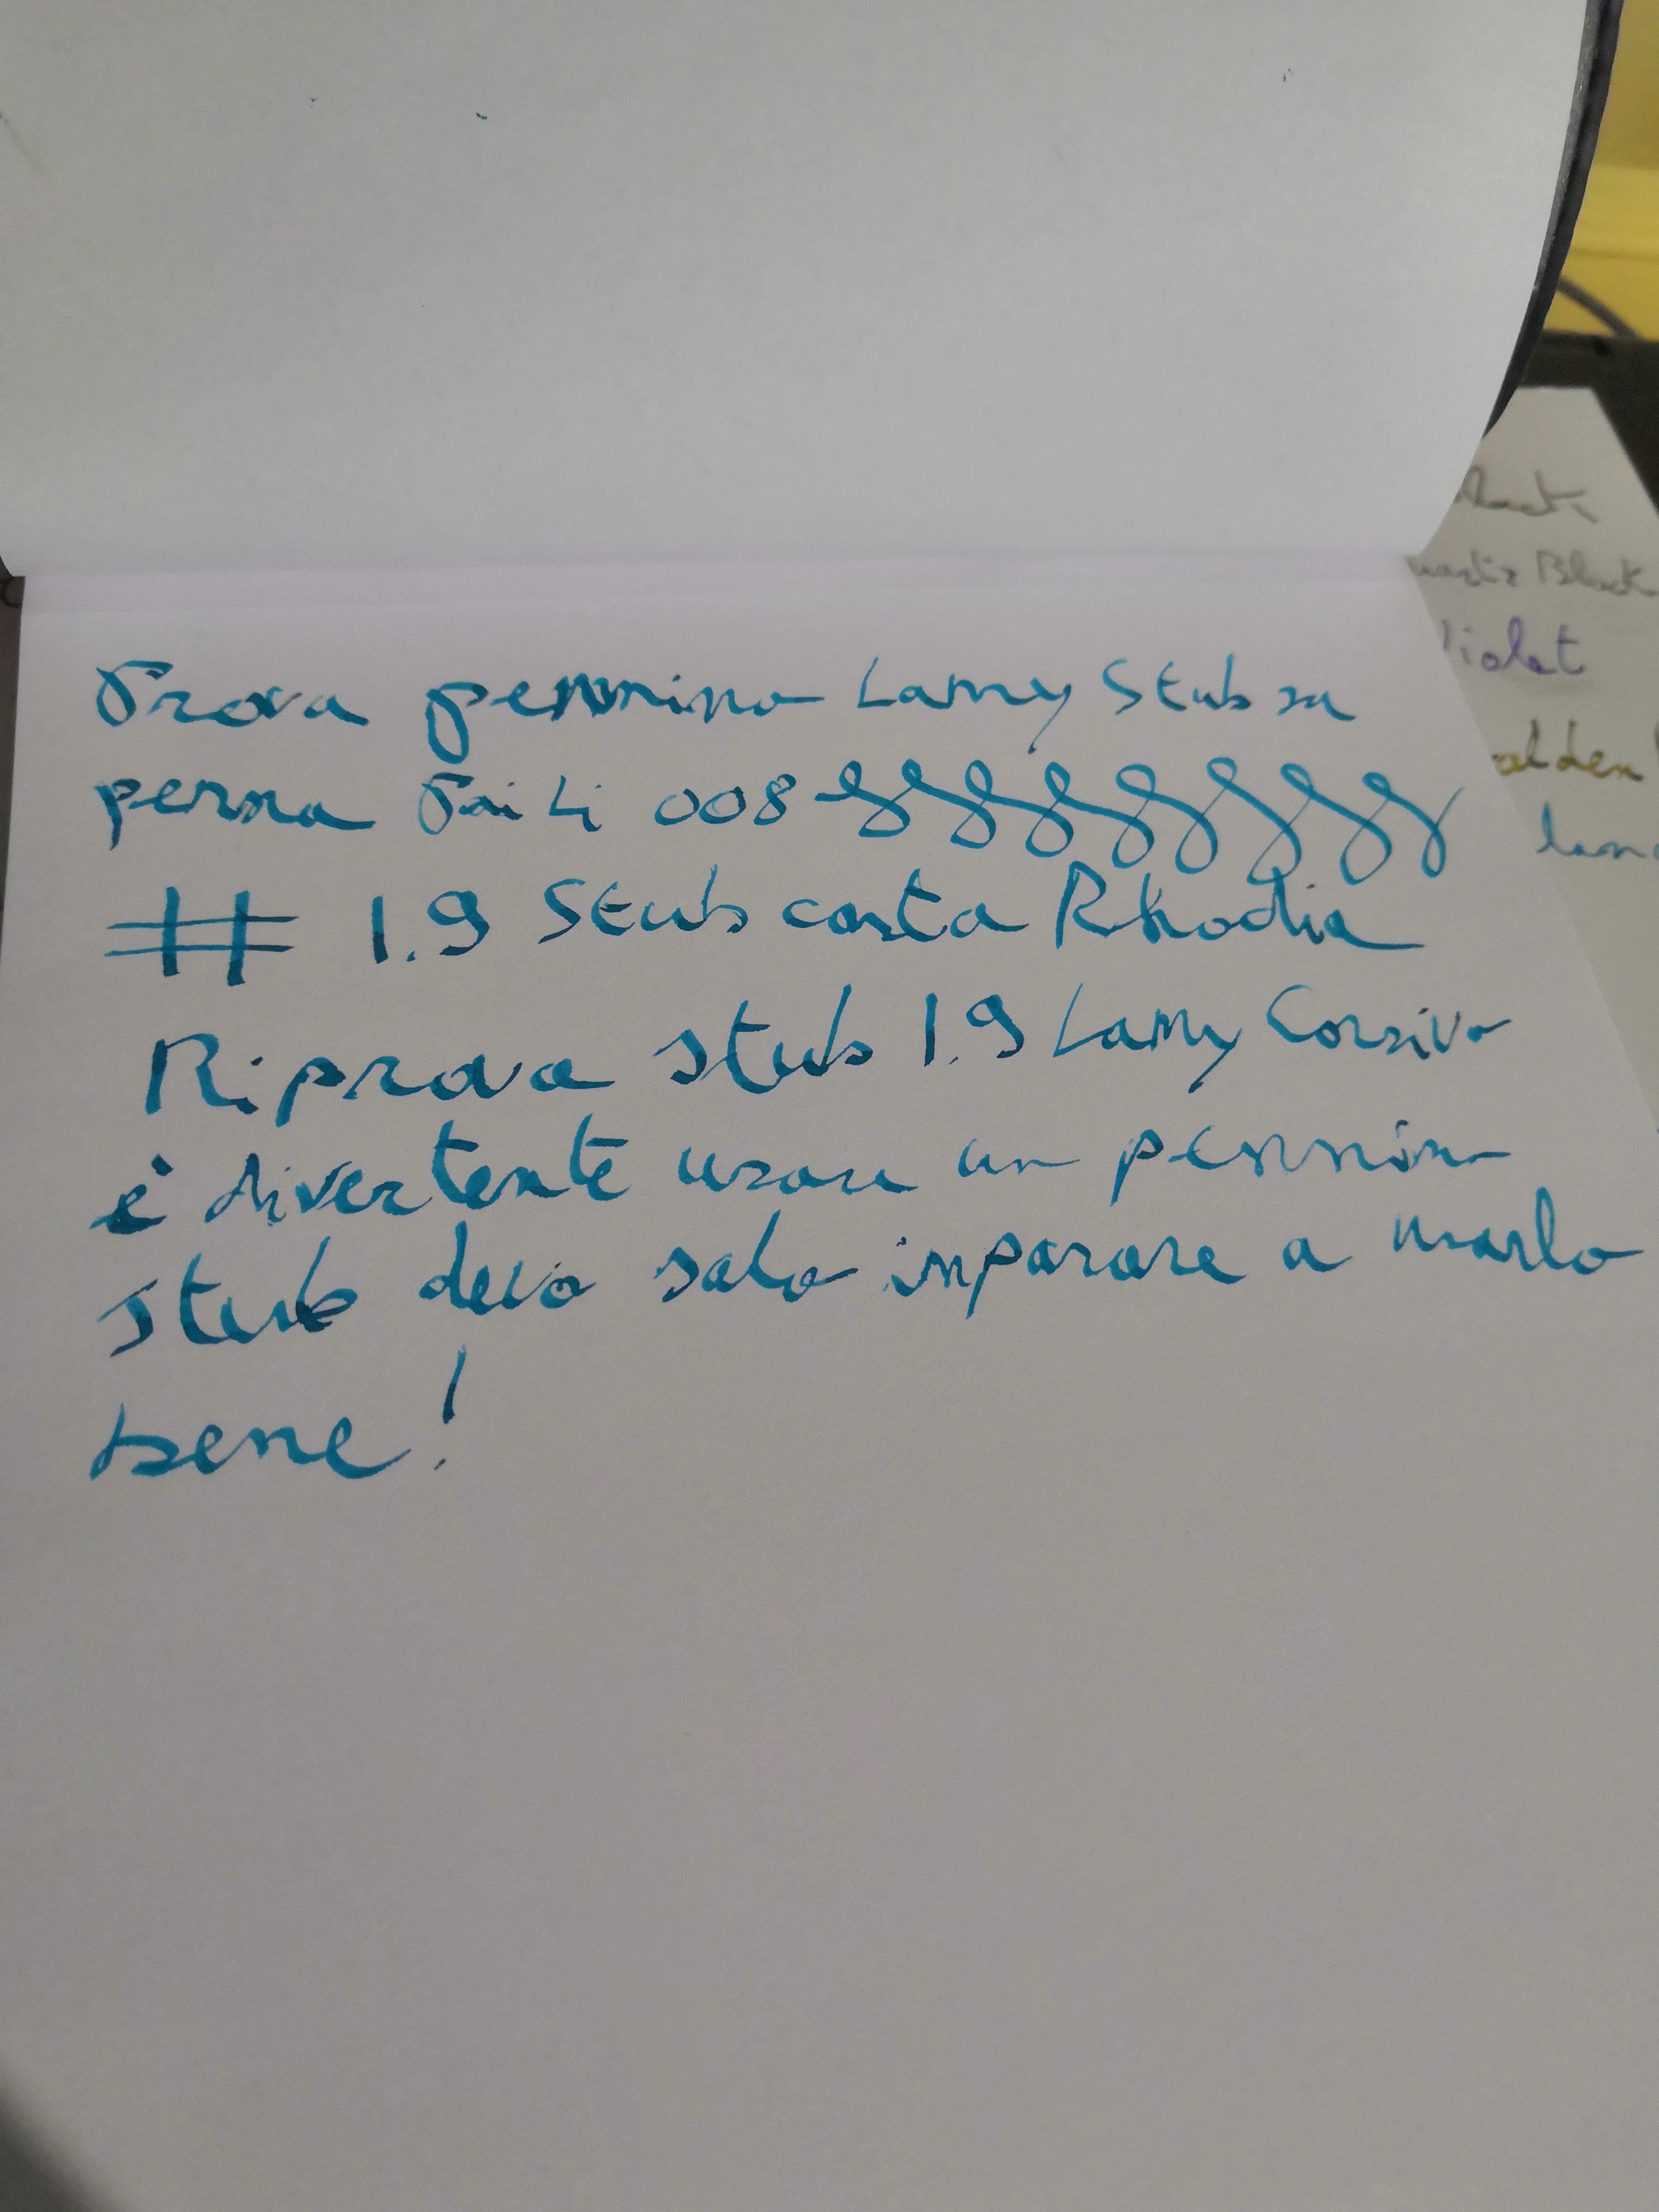 Prova pennino Lamy Stub su
penna PaiLi 008
# 1.9 Stub carta Rhodia
Riprova stub 1.9 Lamy Corsivo
è divertente usare un pennino
stub devo solo imparare a usarlo
bene!
Black
Violet